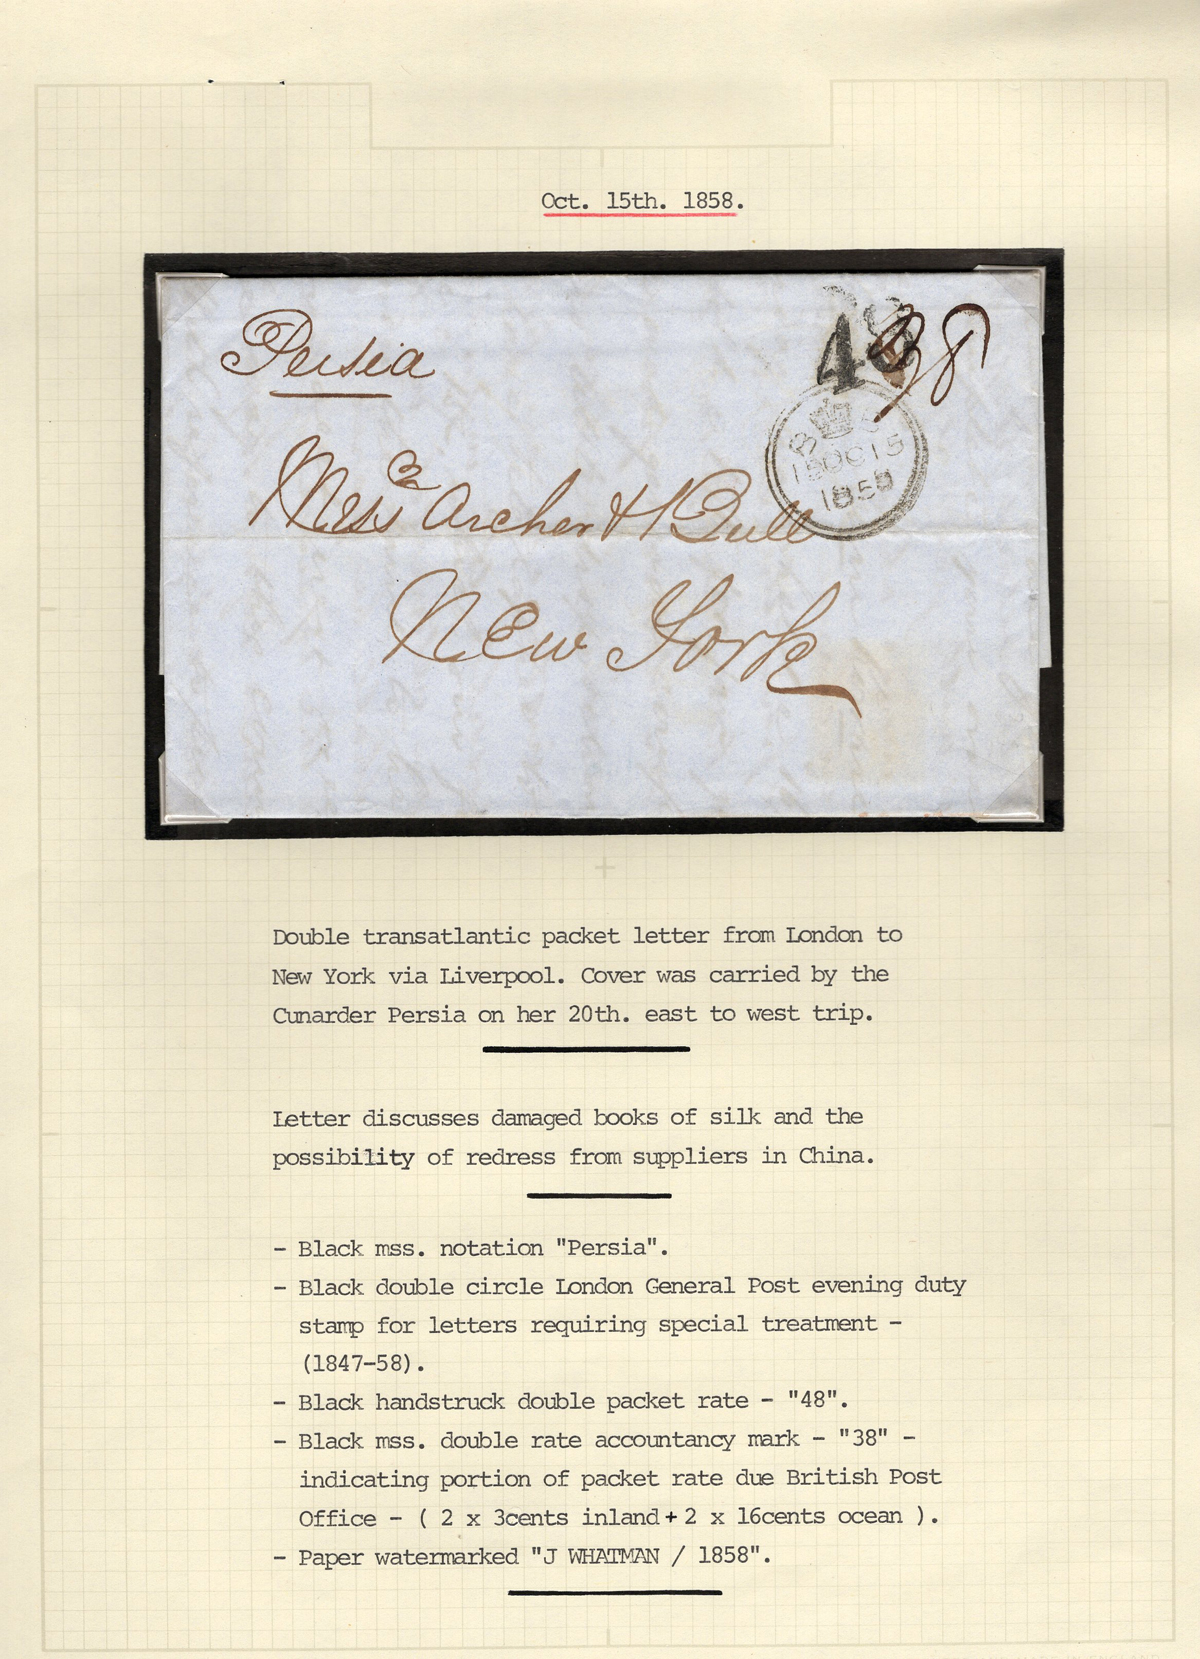 Oct. 15th. 1858.
Persia
48
38
15 OC 15
1858
Messrs Archer & Bull
New York
Double transatlantic packet letter from London to
New York via Liverpool. Cover was carried by the
Cunarder Persia on her 20th. east to west trip.
Letter discusses damaged books of silk and the
possibility of redress from suppliers in China.
- Black mss. notation "Persia".
- Black double circle London General Post evening duty
stamp for letters requiring special treatment -
(1847-58).
- Black handstruck double packet rate - "48".
- Black mss. double rate accountancy mark - "38" -
indicating portion of packet rate due British Post
Office - ( 2 x 3cents inland + 2 x 16cents ocean ).
- Paper watermarked "J WHATMAN / 1858".